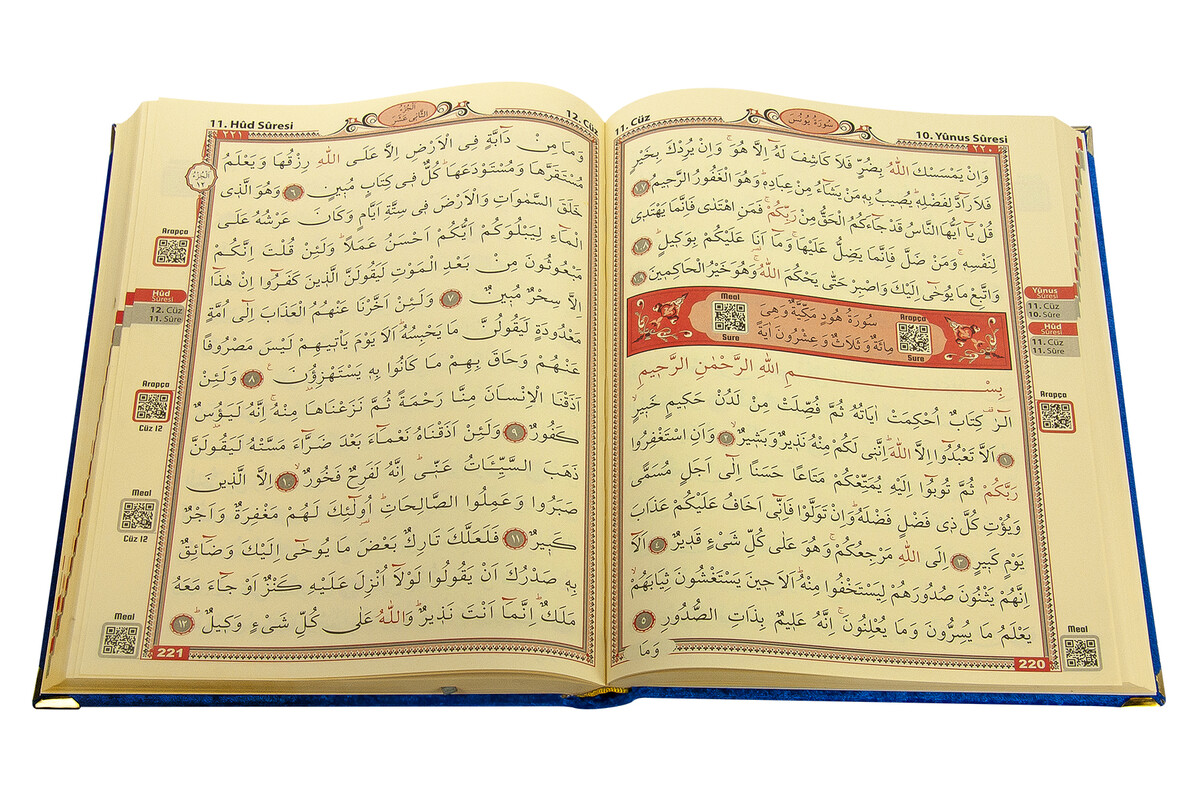 10. Yûnus Sûresi
سُورَةُ يُونُسَ
11. Cüz
٢٢٠
وَاِنْ يَمْسَسْكَ اللّٰهُ بِضُرٍّ فَلَا كَاشِفَ لَهُٓ اِلَّا هُوَۚ وَاِنْ يُرِدْكَ بِخَيْرٍ
فَلَا رَٓادَّ لِفَضْلِه۪ۜ يُص۪يبُ بِه۪ مَنْ يَشَٓاءُ مِنْ عِبَادِه۪ۜ وَهُوَ الْغَفُورُ الرَّح۪يمُ ﴿١٠٧﴾
قُلْ يَٓا اَيُّهَا النَّاسُ قَدْ جَٓاءَكُمُ الْحَقُّ مِنْ رَبِّكُمْۚ فَمَنِ اهْتَدٰى فَاِنَّمَا يَهْتَد۪ي
لِنَفْسِه۪ۚ وَمَنْ ضَلَّ فَاِنَّمَا يَضِلُّ عَلَيْهَاۚ وَمَٓا اَنَا۬ عَلَيْكُمْ بِوَك۪يلٍۜ ﴿١٠٨﴾
وَاتَّبِعْ مَا يُوحٰٓى اِلَيْكَ وَاصْبِرْ حَتّٰى يَحْكُمَ اللّٰهُۚ وَهُوَ خَيْرُ الْحَاكِم۪ينَ ﴿١٠٩﴾
Arapça
Sure
سُورَةُ هُودٍ مَكِّيَّةٌ وَهِيَ
مِائَةٌ وَثَلَاثٌ وَعِشْرُونَ اٰيَةً
Meal
Sure
بِسْمِ اللّٰهِ الرَّحْمٰنِ الرَّح۪يمِ
الٓرٰ۠ كِتَابٌ اُحْكِمَتْ اٰيَاتُهُ ثُمَّ فُصِّلَتْ مِنْ لَدُنْ حَك۪يمٍ خَب۪يرٍۙ
﴿١﴾ اَلَّا تَعْبُدُٓوا اِلَّا اللّٰهَۜ اِنَّن۪ي لَكُمْ مِنْهُ نَذ۪يرٌ وَبَش۪يرٌۙ ﴿٢﴾ وَاَنِ اسْتَغْفِرُوا
رَبَّكُمْ ثُمَّ تُوبُٓوا اِلَيْهِ يُمَتِّعْكُمْ مَتَاعاً حَسَناً اِلٰٓى اَجَلٍ مُسَمًّى
وَيُؤْتِ كُلَّ ذ۪ي فَضْلٍ فَضْلَهُۜ وَاِنْ تَوَلَّوْا فَاِنّ۪ٓي اَخَافُ عَلَيْكُمْ عَذَابَ
يَوْمٍ كَب۪يرٍ ﴿٣﴾ اِلَى اللّٰهِ مَرْجِعُكُمْۚ وَهُوَ عَلٰى كُلِّ شَيْءٍ قَد۪يرٌ ﴿٤﴾ اَلَٓا
اِنَّهُمْ يَثْنُونَ صُدُورَهُمْ لِيَسْتَخْفُوا مِنْهُۜ اَلَا ح۪ينَ يَسْتَغْشُونَ ثِيَابَهُمْۙ
يَعْلَمُ مَا يُسِرُّونَ وَمَا يُعْلِنُونَۚ اِنَّهُ عَل۪يمٌ بِذَاتِ الصُّدُورِ ﴿٥﴾
وَمَا
220
Yûnus
Sûresi
11. Cüz
10. Sûre
Hûd
Sûresi
11. Cüz
11. Sûre
Arapça
Meal
12. Cüz
اَلْجُزْءُ
الثَّانِي عَشَرَ
11. Hûd Sûresi
٢٢١
اَلْجُزْءُ
١٢
وَمَا مِنْ دَٓابَّةٍ فِي الْاَرْضِ اِلَّا عَلَى اللّٰهِ رِزْقُهَا وَيَعْلَمُ
مُسْتَقَرَّهَا وَمُسْتَوْدَعَهَاۜ كُلٌّ ف۪ي كِتَابٍ مُب۪ينٍ ﴿٦﴾ وَهُوَ الَّذ۪ي
خَلَقَ السَّمٰوَاتِ وَالْاَرْضَ ف۪ي سِتَّةِ اَيَّامٍ وَكَانَ عَرْشُهُ عَلَى
الْمَٓاءِ لِيَبْلُوَكُمْ اَيُّكُمْ اَحْسَنُ عَمَلاًۜ وَلَئِنْ قُلْتَ اِنَّكُمْ
مَبْعُوثُونَ مِنْ بَعْدِ الْمَوْتِ لَيَقُولَنَّ الَّذ۪ينَ كَفَرُٓوا اِنْ هٰذَٓا
اِلَّا سِحْرٌ مُب۪ينٌ ﴿٧﴾ وَلَئِنْ اَخَّرْنَا عَنْهُمُ الْعَذَابَ اِلٰٓى اُمَّةٍ
مَعْدُودَةٍ لَيَقُولُنَّ مَا يَحْبِسُهُۜ اَلَا يَوْمَ يَأْت۪يهِمْ لَيْسَ مَصْرُوفاً
عَنْهُمْ وَحَاقَ بِهِمْ مَا كَانُوا بِه۪ يَسْتَهْزِؤُ۫نَ۟ ﴿٨﴾ وَلَئِنْ
اَذَقْنَا الْاِنْسَانَ مِنَّا رَحْمَةً ثُمَّ نَزَعْنَاهَا مِنْهُۚ اِنَّهُ لَيَؤُ۫سٌ
كَفُورٌ ﴿٩﴾ وَلَئِنْ اَذَقْنَاهُ نَعْمَٓاءَ بَعْدَ ضَرَّٓاءَ مَسَّتْهُ لَيَقُولَنَّ
ذَهَبَ السَّيِّـَٔاتُ عَنّ۪يۜ اِنَّهُ لَفَرِحٌ فَخُورٌۙ ﴿١٠﴾ اِلَّا الَّذ۪ينَ
صَبَرُوا وَعَمِلُوا الصَّالِحَاتِۜ اُو۬لٰٓئِكَ لَهُمْ مَغْفِرَةٌ وَاَجْرٌ
كَب۪يرٌ ﴿١١﴾ فَلَعَلَّكَ تَارِكٌ بَعْضَ مَا يُوحٰٓى اِلَيْكَ وَضَٓائِقٌ
بِه۪ صَدْرُكَ اَنْ يَقُولُوا لَوْلَٓا اُنْزِلَ عَلَيْهِ كَنْزٌ اَوْ جَٓاءَ مَعَهُ
مَلَكٌۜ اِنَّمَٓا اَنْتَ نَذ۪يرٌۜ وَاللّٰهُ عَلٰى كُلِّ شَيْءٍ وَك۪يلٌۜ ﴿١٢﴾
221
Arapça
Hûd
Sûresi
12. Cüz
11. Sûre
Arapça
Cüz 12
Meal
Cüz 12
Meal